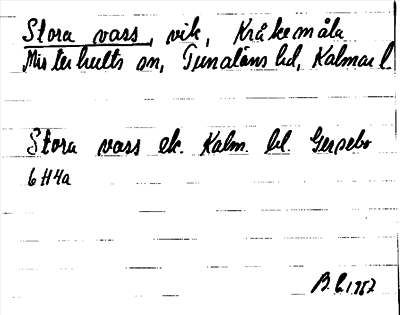 Stora vass, vik, Kråkemåla
Misterhults sn, Tunaläns hd, Kalmar l.
Stora vass ek. Kalm. bl. Gersebo
6H4a
B.L. 1967